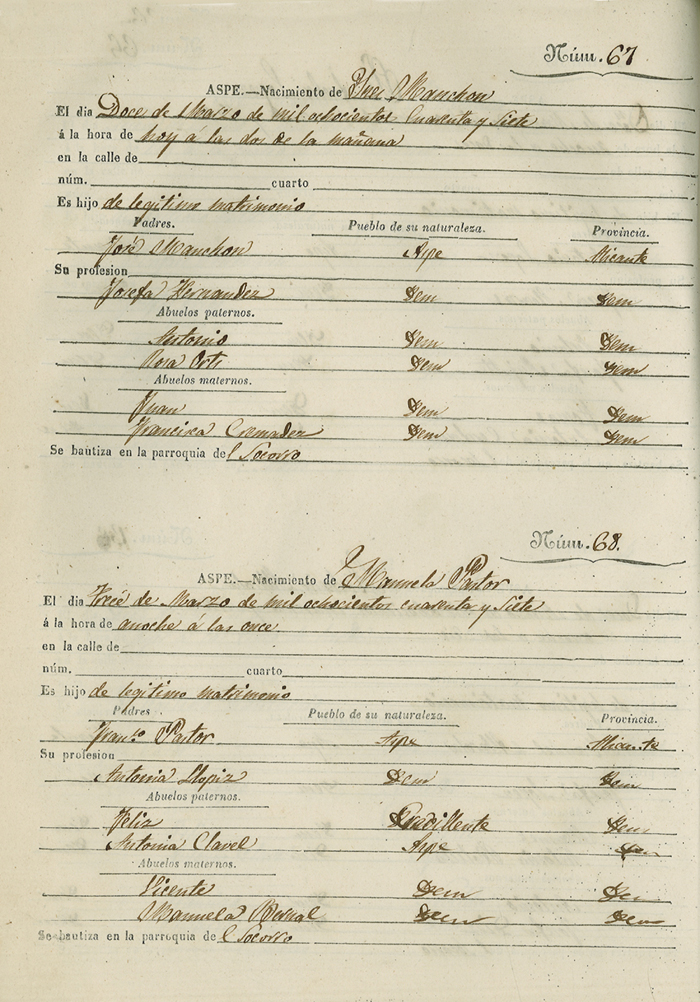 Núm. 67
ASPE.—Nacimiento de Manchon
El dia Doce de Marzo de mil ochocientos Cuarenta y Siete
á la hora de hoy á las dos de la mañana
en la calle de
núm. cuarto
Es hijo de legitimo matrimonio
Padres. Pueblo de su naturaleza. Provincia.
José Manchon Aspe Alicante
Su profesion
Josefa Hernandez Idem Idem
Abuelos paternos.
Antonio Idem Idem
Rosa Orts Idem Idem
Abuelos maternos.
Juan Idem Idem
Francisca Cremades Idem Idem
Se bautiza en la parroquia del Socorro
Núm. 68.
ASPE.—Nacimiento de Manuela Pastor
El dia Trece de Marzo de mil ochocientos cuarenta y Siete
á la hora de anoche á las once
en la calle de
núm. cuarto
Es hijo de legitimo matrimonio
Padres Pueblo de su naturaleza. Provincia.
Fran.co Pastor Aspe Alicante
Su profesion
Antonia Llopiz Idem Idem
Abuelos paternos.
Feliz Crevillente Idem
Antonia Clavel Aspe Idem
Abuelos maternos.
Vicente Idem Idem
Manuela Bernal Idem Idem
Se bautiza en la parroquia de l Socorro